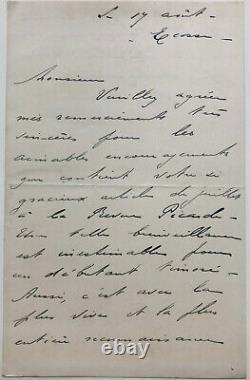 Le 17 août -
Ecosse -
Monsieur
Veuillez agréer
mes remerciements très
sincères pour les
aimables encouragements
que contient votre si
gracieux article de juillet
à la Revue Picarde -
Une telle bienveillance
est inestimable pour
un débutant timoré -
Aussi, c'est avec la
plus vive et la plus
entière reconnaissance